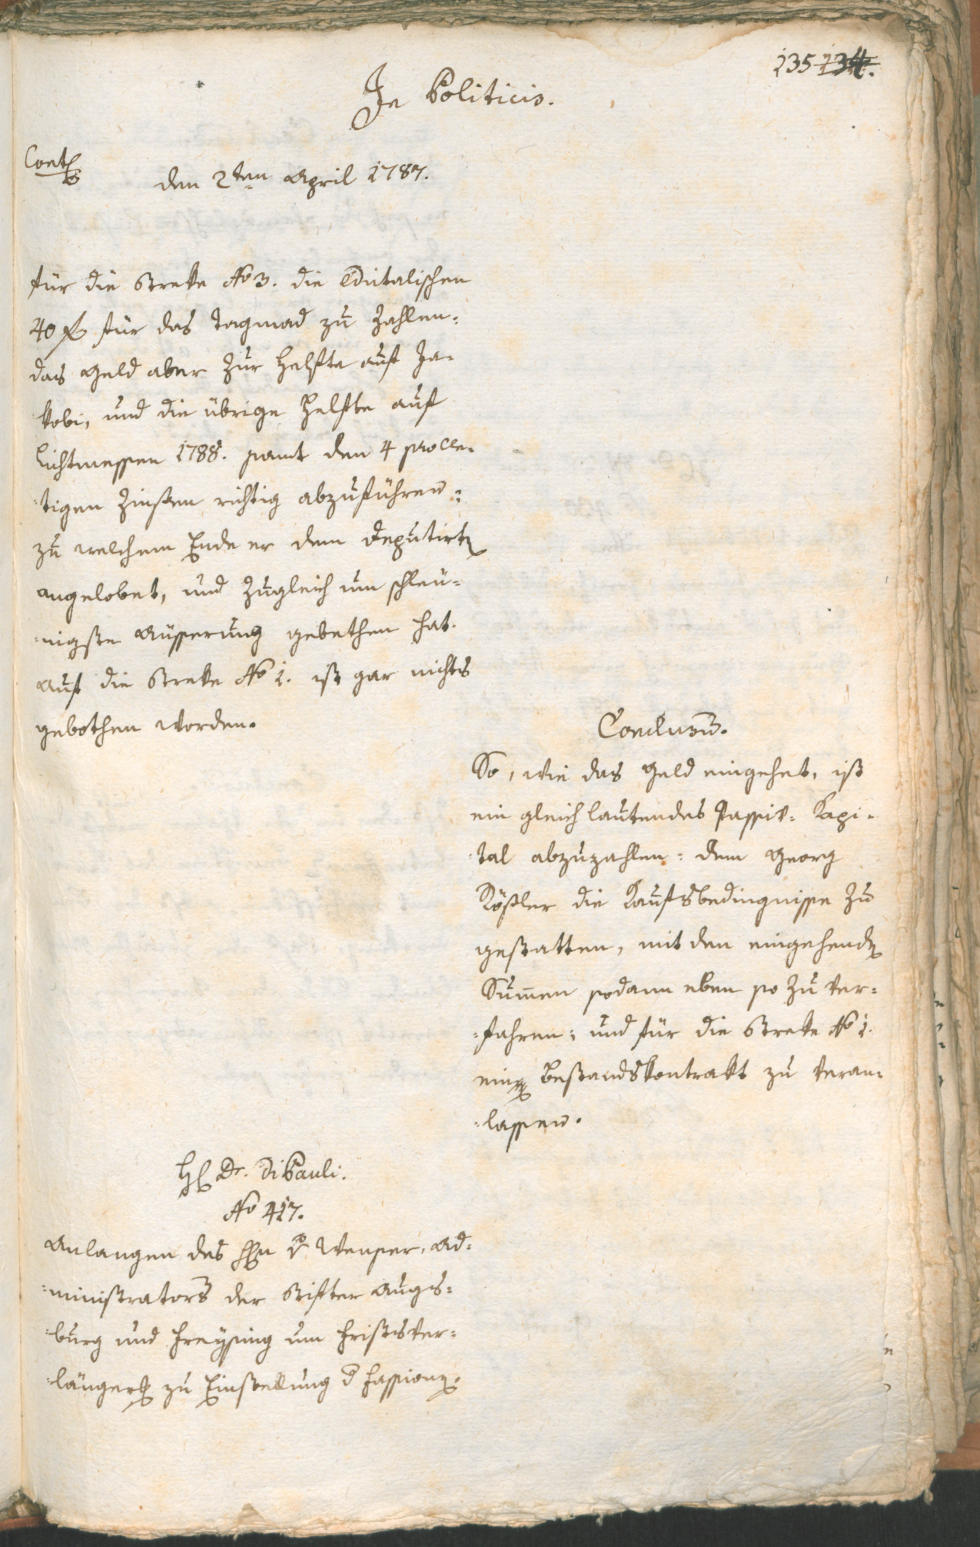 135 134.
In Politicis.
den 2ten April 1787.
für die Streke No 3. die Edictalischen
40 f für das Tagmad zu zahlen:
das Geld aber zur Helfte auf Ja-
kobi, und die übrige Helfte auf
Lichtmessen 1788. samt den 4 procen-
tigen Zinßen richtig abzuführen:
zu welchem Ende er dem Deputirt
angelobet, und zugleich um schleu-
nigste Äusserung gebethen hat.
Auf die Streke No 1. ist gar nichts
gebothen worden.
Conclusum.
So, wie das Geld eingehet, ist
ein gleich lautendes Passiv-Kapi-
tal abzuzahlen: dem Georg
Kößler die Kaufsbedingnisse zu
gestatten, mit den eingehend
Summen sodann eben so zu ver-
fahren: und für die Streke No 1.
einen Bestandskontrakt zu veran-
lassen.
H Dr. Di Pauli.
No 417.
Anlangen des Hn v Wenser, Ad-
ministrators der Stifter Augs-
burg und Freysing um Fristver-
länger zu Einstellung d Fassion.